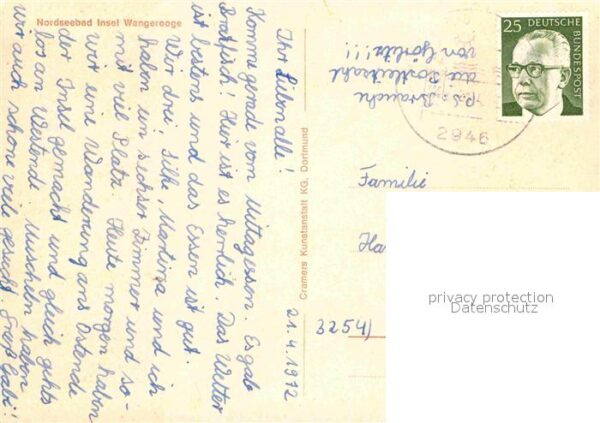 Nordseebad Insel Wangerooge
21.4.1972
Ihr Lieben alle!
Komme gerade vom Mittagessen. Es gab
Bratfisch! Hier ist es herrlich. Das Wetter
ist bestens und das Essen ist gut.
Wir drei: Silke, Martina und ich
haben ein sechser Zimmer und so-
mit viel Platz. Heute morgen haben
wir eine Wanderung ans Ostende
der Insel gemacht und gleich gehts
los an Westende. Muscheln haben
wir auch schone viele gesucht. Gruß Gabi!
Cramers Kunstanstalt KG, Dortmund
P.S. Brauche
die Postleitzahl
von Görlitz!!!
25 DEUTSCHE
BUNDESPOST
2946
Familie
Ha
3254)
privacy protection
Datenschutz